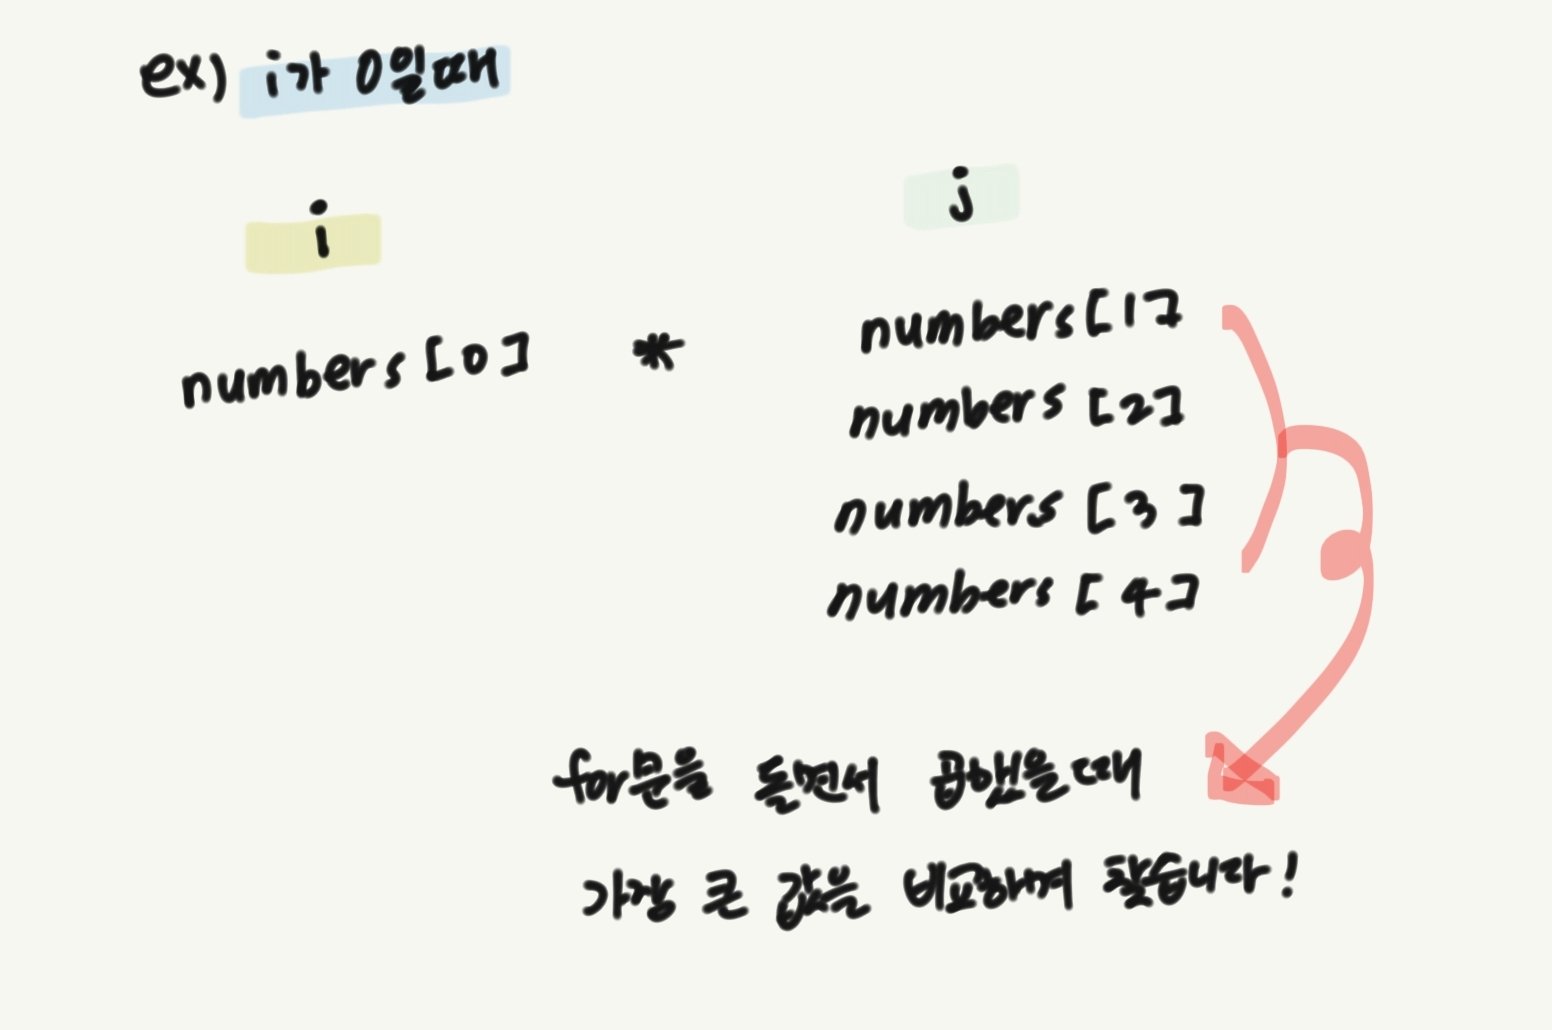 ex) i가 0일때
i
j
numbers[0] * numbers[1]
numbers[2]
numbers[3]
numbers[4]
for문을 돌면서 곱했을때
가장 큰 값을 비교하며 찾습니다!